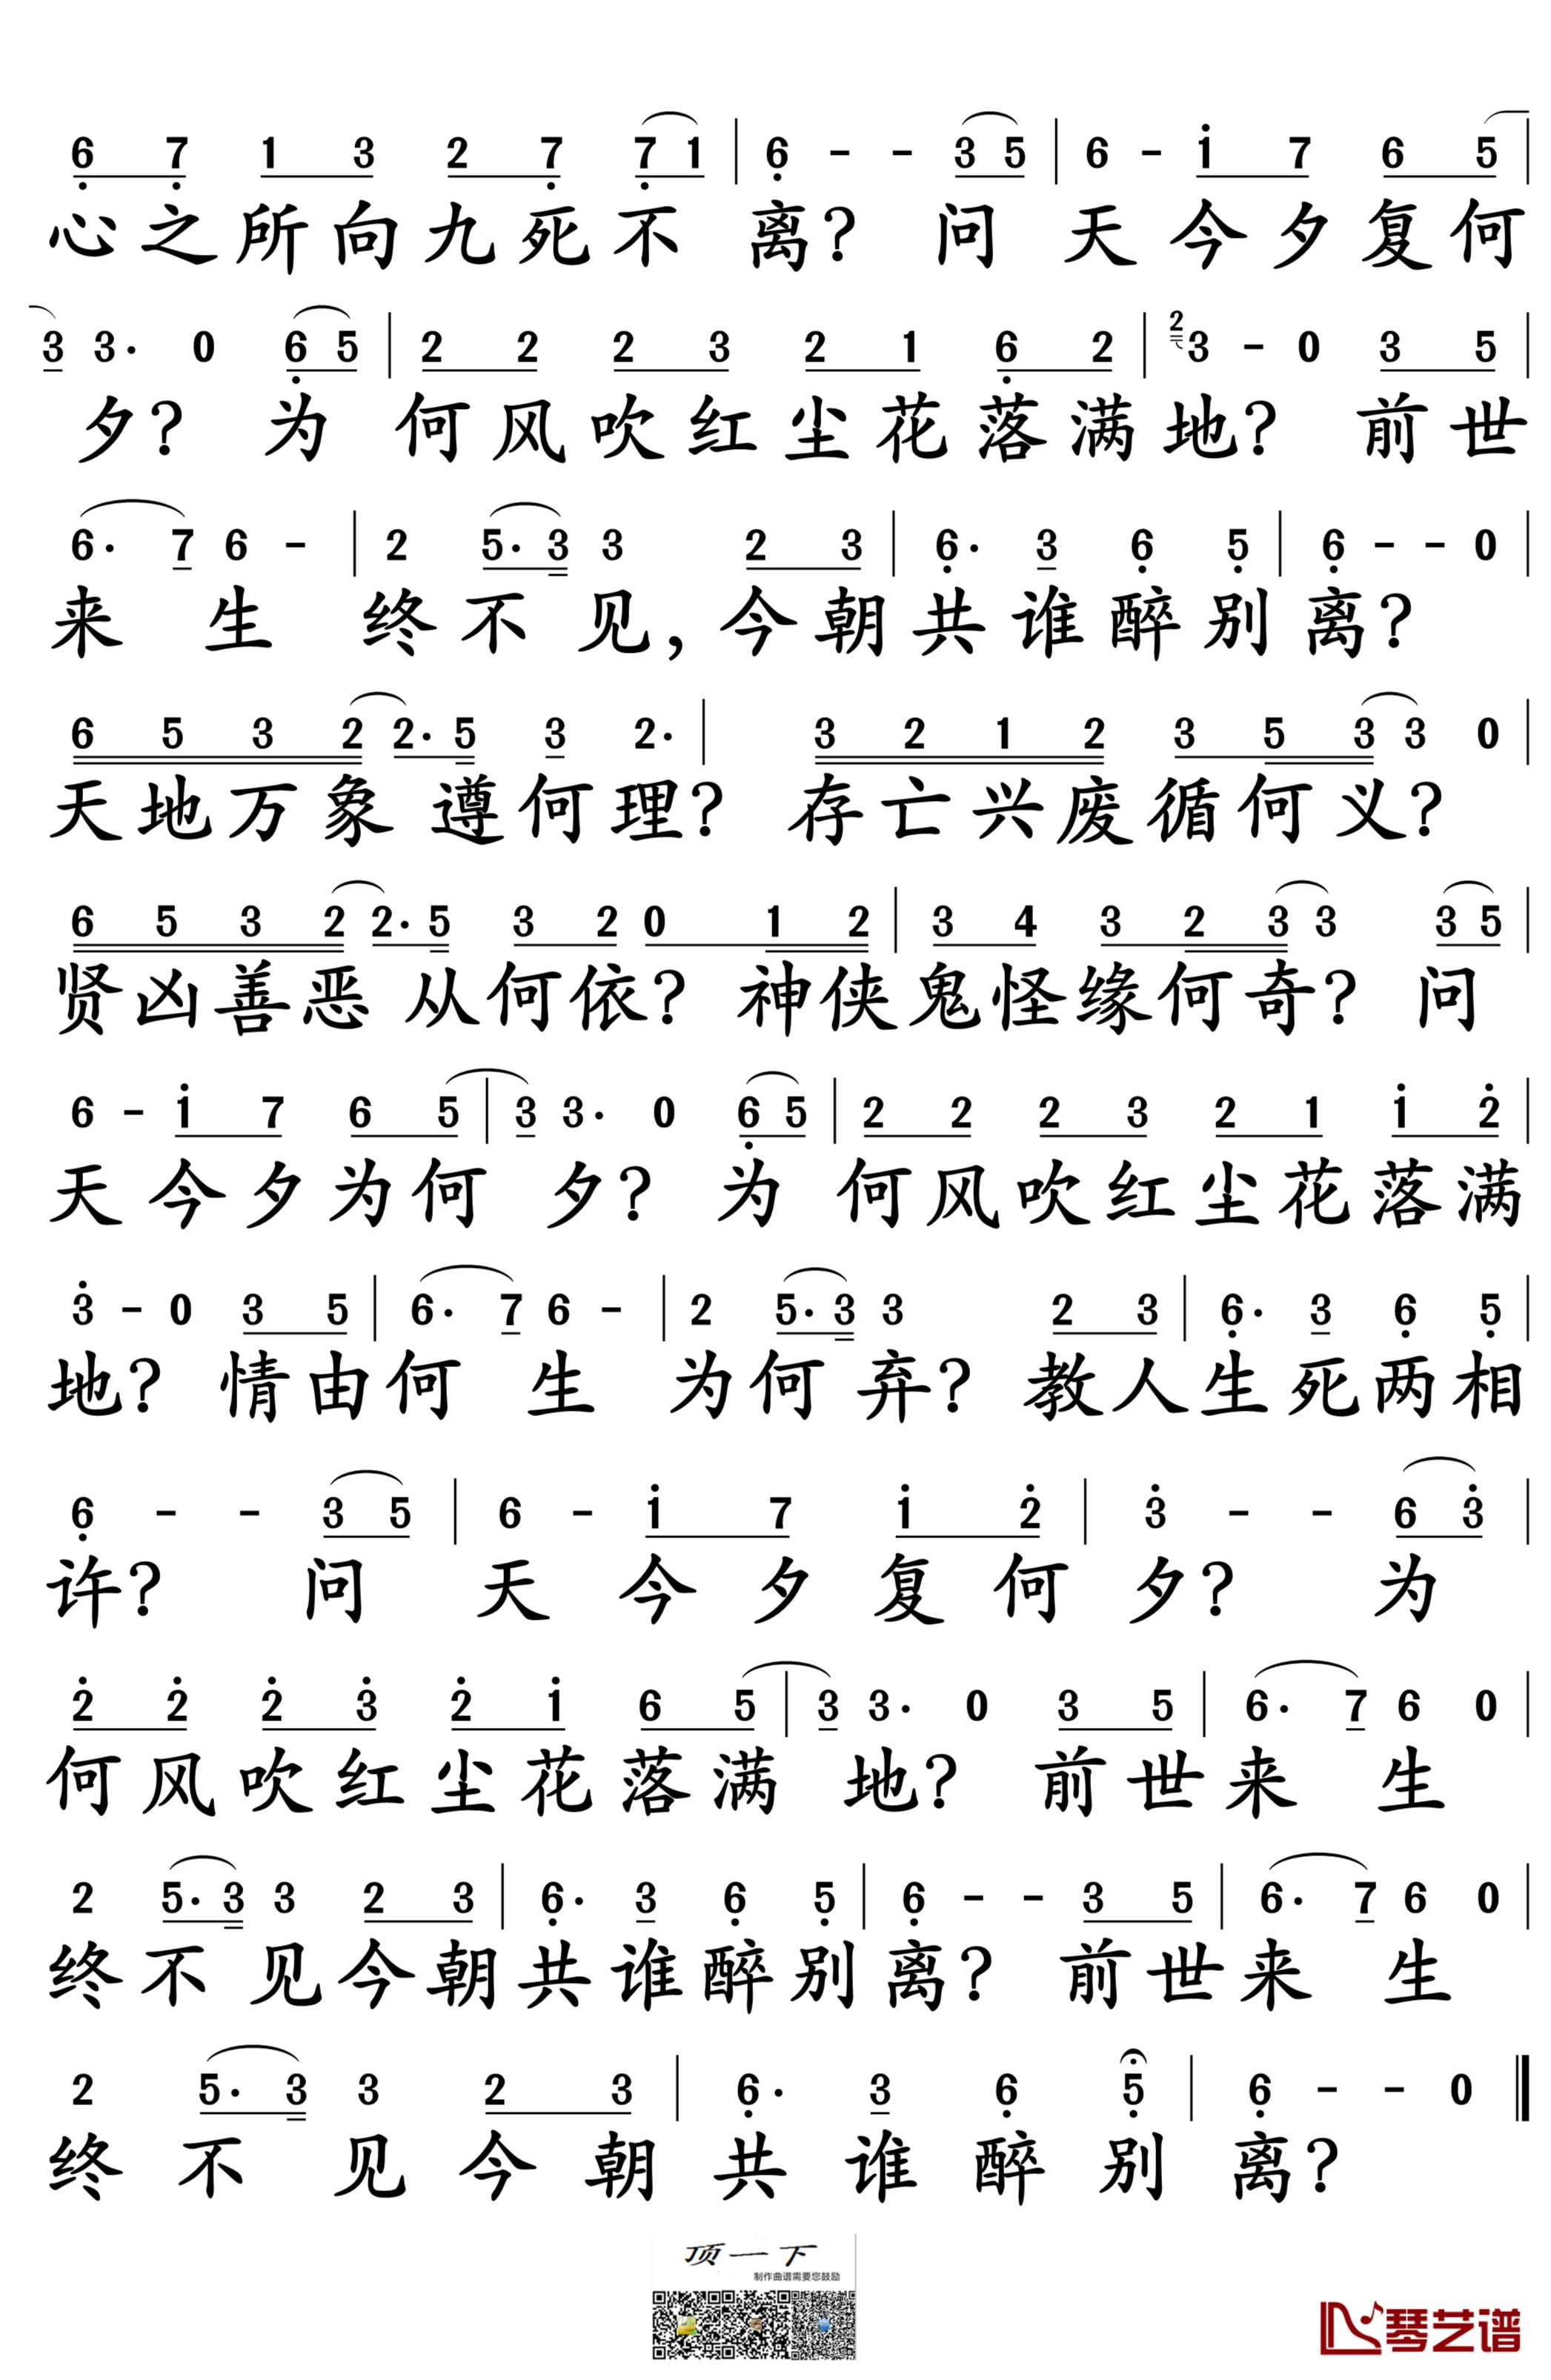 6 7 1 3 2 7 7 1 | 6 - - 3 5 | 6 - 1 7 6 5 |
心之所向九死不 离? 问 天 今夕复何
3 3· 0 6 5 | 2 2 2 3 2 1 6 2 | 2 3 - 0 3 5 |
夕? 为 何风吹红尘花落满 地? 前世
6· 7 6 - | 2 5· 3 3 2 3 | 6· 3 6 5 | 6 - - 0 |
来 生 终 不 见, 今朝 共 谁 醉 别 离?
6 5 3 2 2· 5 3 2· | 3 2 1 2 3 5 3 3 0 |
天地万象 遵何理? 存亡兴废循何义?
6 5 3 2 2· 5 3 2 0 1 2 | 3 4 3 2 3 3 3 5 |
贤凶善恶 从何依? 神侠鬼怪缘何奇? 问
6 - 1 7 6 5 | 3 3· 0 6 5 | 2 2 2 3 2 1 1 2 |
天 今夕为何 夕? 为 何风吹红尘花落满
3 - 0 3 5 | 6· 7 6 - | 2 5· 3 3 2 3 | 6· 3 6 5 |
地? 情由何 生 为何 弃? 教人生死两相
6 - - 3 5 | 6 - 1 7 1 2 | 3 - - 6 3 |
许? 问 天 今 夕 复 何 夕? 为
2 2 2 3 2 1 6 5 | 3 3· 0 3 5 | 6· 7 6 0 |
何风吹红尘花落满 地? 前世来 生
2 5· 3 3 2 3 | 6· 3 6 5 | 6 - - 3 5 | 6· 7 6 0 |
终不 见今朝共谁醉别离? 前世来 生
2 5· 3 3 2 3 | 6· 3 6 5 | 6 - - 0
终 不 见 今 朝 共 谁 醉 别 离?
顶一下
制作曲谱需要您鼓励
琴艺谱